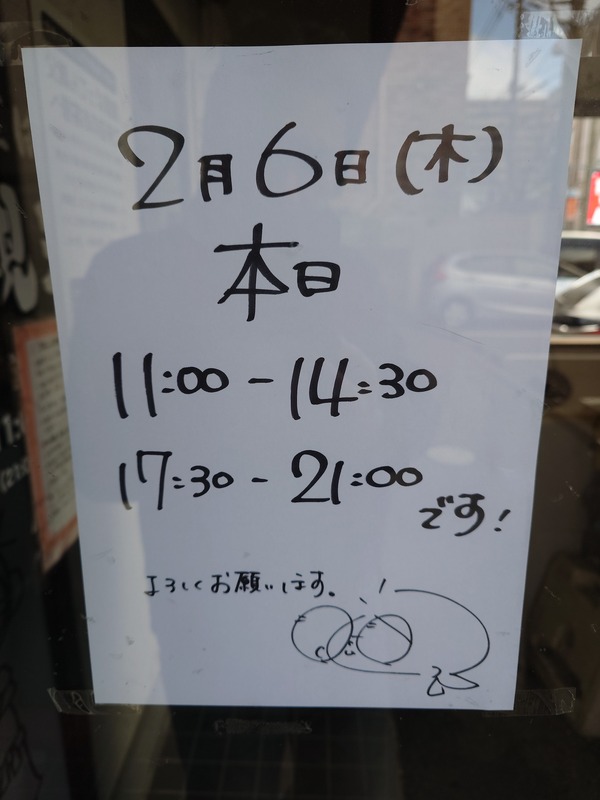 2月6日(木)
本日
11:00-14:30
17:30-21:00
です!
よろしくお願いします。